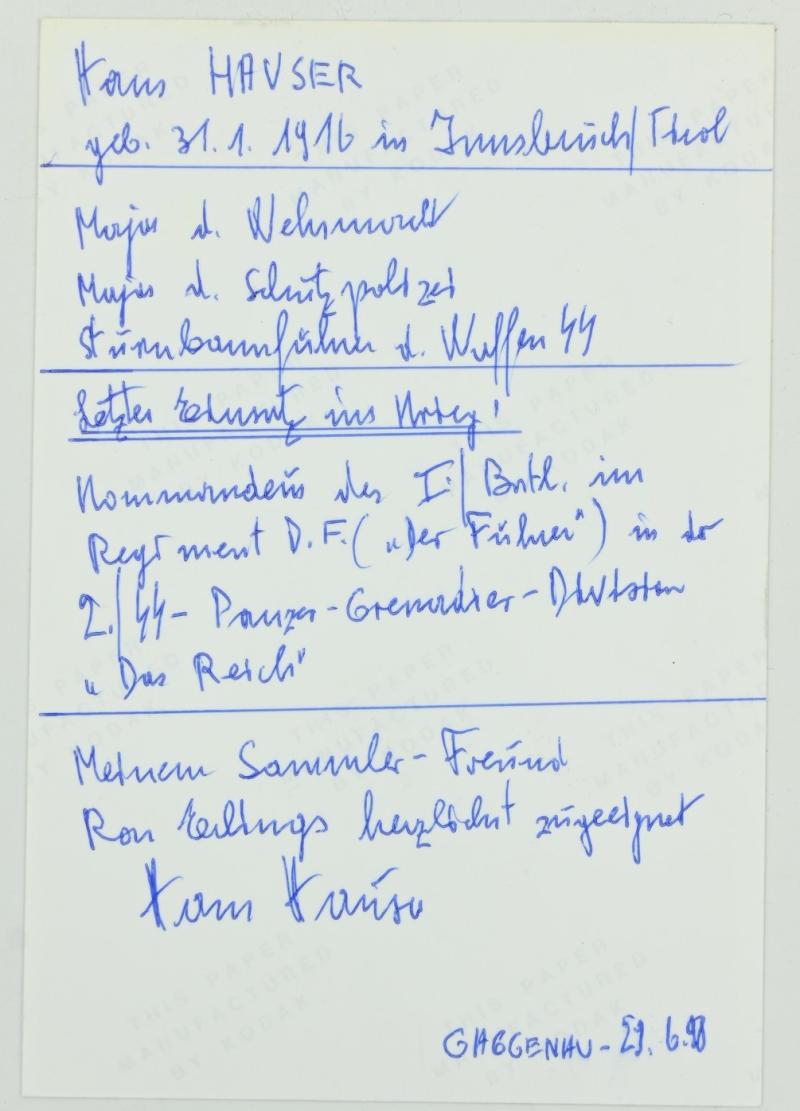 Hans HAUSER
geb. 31.1.1916 in Innsbruck/Tirol
Major d. Wehrmacht
Major d. Schutzpolizei
Sturmbannführer d. Waffen SS
Letzter Einsatz im Krieg!
Kommandeur des I./Batl. im
Regiment D.F. („Der Führer“) in der
2./SS-Panzer-Grenadier-Division
„Das Reich“
Meinem Sammler-Freund
Ron herzlichst zugeeignet
Hans Hauser
GAGGENAU - 29.6.98
THIS PAPER
MANUFACTURED
BY KODAK